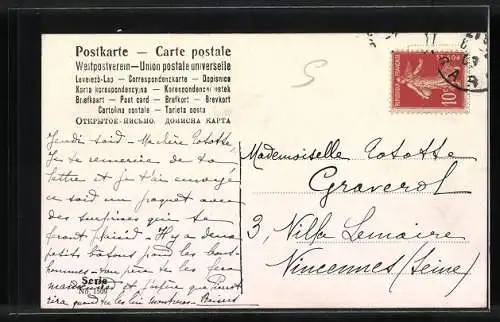 Postkarte — Carte postale
Weltpostverein — Union postale universelle
Levelezö-Lap — Correspondenzkarte — Dopisnice
Karta korespondencyjna — Korespondenční lístek
Brefkaart — Post card — Brefkort — Brevkort
Cartolina postale — Tarjeta posta
ОТКРЫТОЕ-ПИСЬМО. ДОПИСНА КАРТА
S
REPUBLIQUE FRANÇAISE
10c
PAR
Jeudi soir — Ma chère Totote
Je te remercie de ta
lettre et je t'ai envoyé
ce soir un paquet avec
des surprises qui te
feront plaisir — Il y a deux
petits bâtons pour les bons
hommes
Baisers
Mademoiselle Totote
Graverol
3, Villa Lemaire
Vincennes (Seine)
Serie
No. 1509